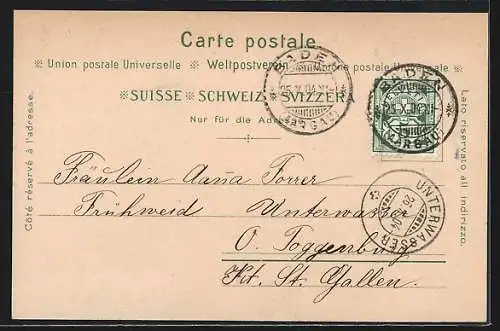 Carte postale.
Union postale Universelle. Weltpostverein. Unione postale Universale.
SUISSE. SCHWEIZ. SVIZZERA
Nur für die Adresse
Côté réservé à l'adresse.
Lato riservato all' indirizzo.
BADEN
25.X.04.XI
(AARGAU)
BADEN
25.X.04.XI
(AARGAU)
UNTERWASSER
Fräulein Anna Forrer
Frühweid Unterwasser
O. Toggenburg
Kt. St. Gallen.